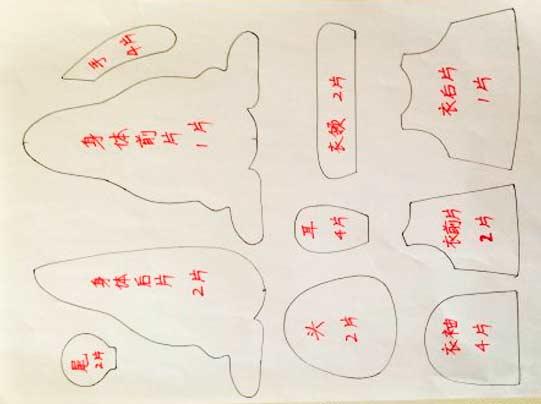 手 4片
身体前片 1片
衣领 2片
衣后片
1片
耳
4片
衣前片
2片
身体后片 2片
头
2片
衣袖
4片
尾
2片